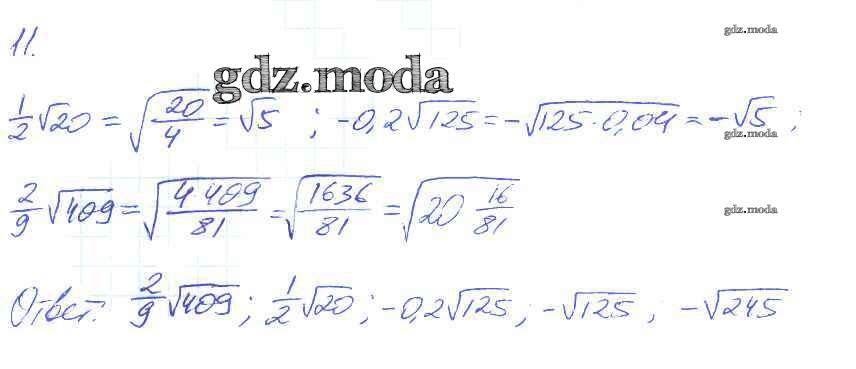 11.
gdz.moda
gdz.moda
1/2 √20 = √(20/4) = √5 ; -0,2√125 = -√(125·0,04) = -√5 ;
gdz.moda
2/9 √409 = √(4 409/81) = √(1636/81) = √(20 16/81)
gdz.moda
Ответ: 2/9 √409 ; 1/2 √20 ; -0,2√125 ; -√125 ; -√245